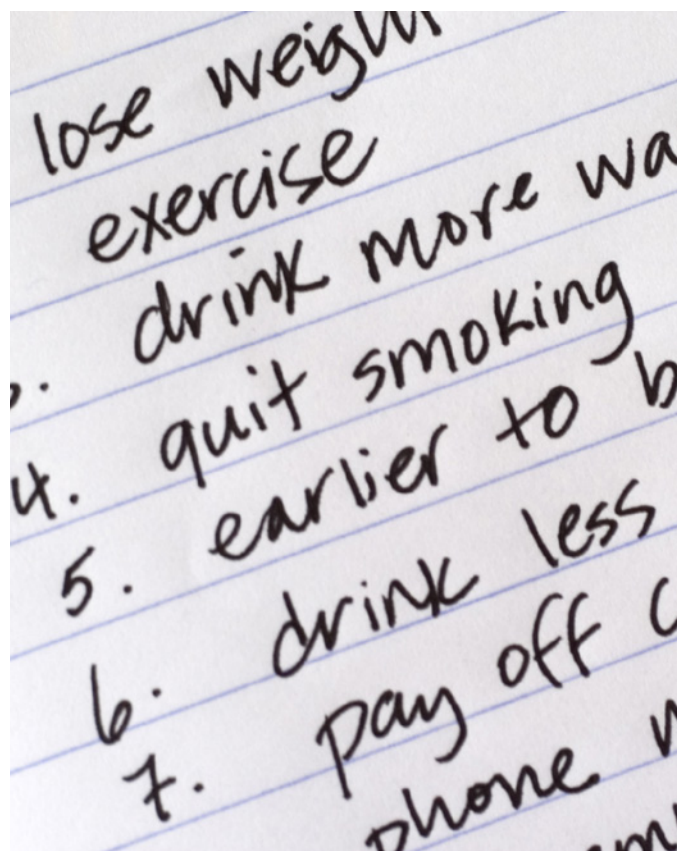 lose weight
exercise
drink more wa
4. quit smoking
5. earlier to b
6. drink less
7. pay off c
phone